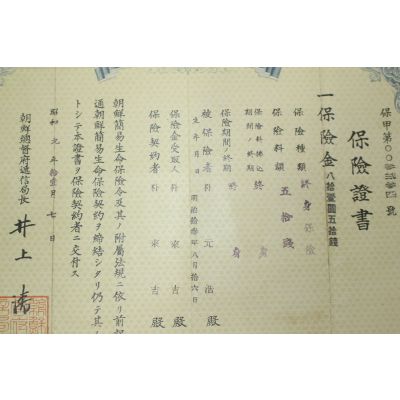 保甲第〇〇 號
保險證書
一保險金八拾壹圓五拾錢
保險種類 終身保險
保險料額 五拾錢
保險料拂込期間ノ終期 終身
保險期間ノ終期 終身
被保險者 朴元浩 殿
生年月日 明治拾參年八月拾六日
保險金受取人 朴來吉 殿
保險契約者 朴來吉 殿
朝鮮簡易生命保險令及其ノ附屬法規ニ依リ前記
通朝鮮簡易生命保險契約ヲ締結シタリ仍テ其ノ
トシテ本證書ヲ保險契約者ニ交付ス
昭和 年拾壹月 七日
朝鮮總督府遞信局長 井上清